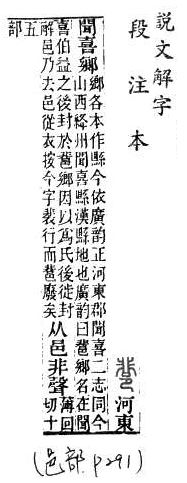 說文解字
段注本
河東
聞喜鄉
鄉各本作縣今依廣韵正河東郡聞喜二志同今
山西絳州聞喜縣漢縣地也廣韵曰𨛬鄉名在聞
喜伯益之後封於𨛬鄉因以爲氏後徙封
解邑乃去邑從衣按今字裴行而𨛬廢矣
从邑非聲
薄回
切十
五
部
(邑部 P291)